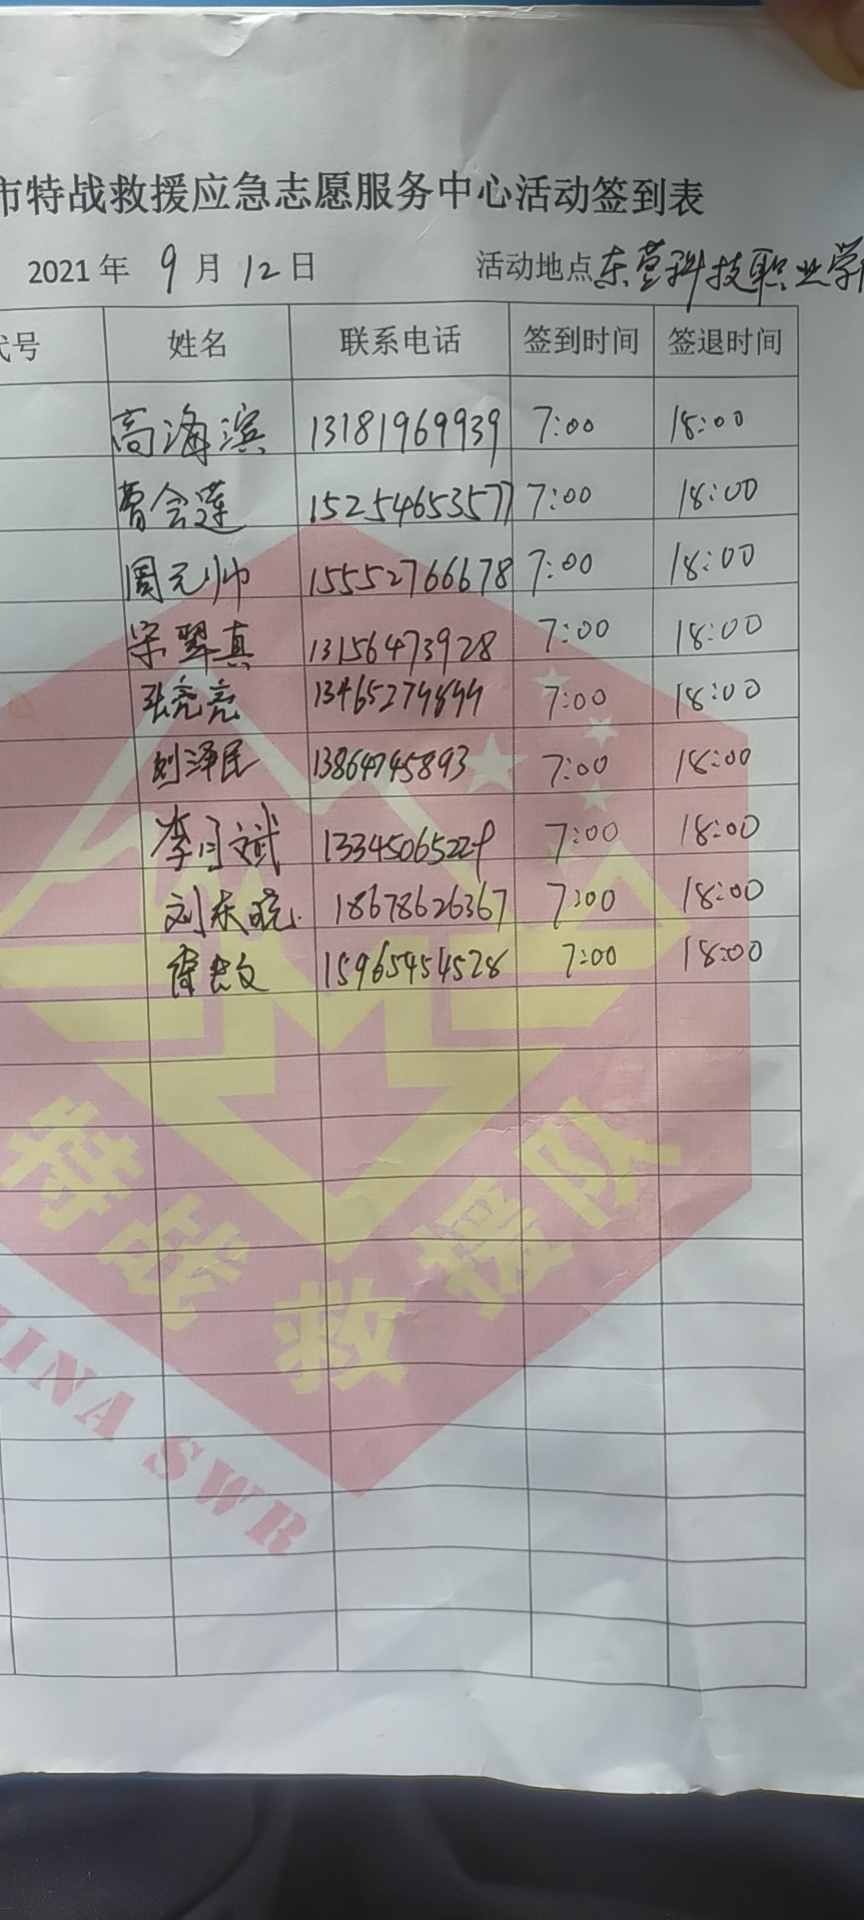 市特战救援应急志愿服务中心活动签到表
2021 年 9 月 12 日 活动地点 东营科技职业学
代号 姓名 联系电话 签到时间 签退时间
高海滨 13181969939 7:00 18:00
曹会莲 15254653577 7:00 18:00
周元帅 15552766678 7:00 18:00
宋翠真 13156473928 7:00 18:00
张亮亮 7:00 18:00
刘泽民 13864745893 7:00 18:00
李 斌 7:00 18:00
刘东晓 18678626367 7:00 18:00
15965454528 7:00 18:00
特战救援队
HINA SWR